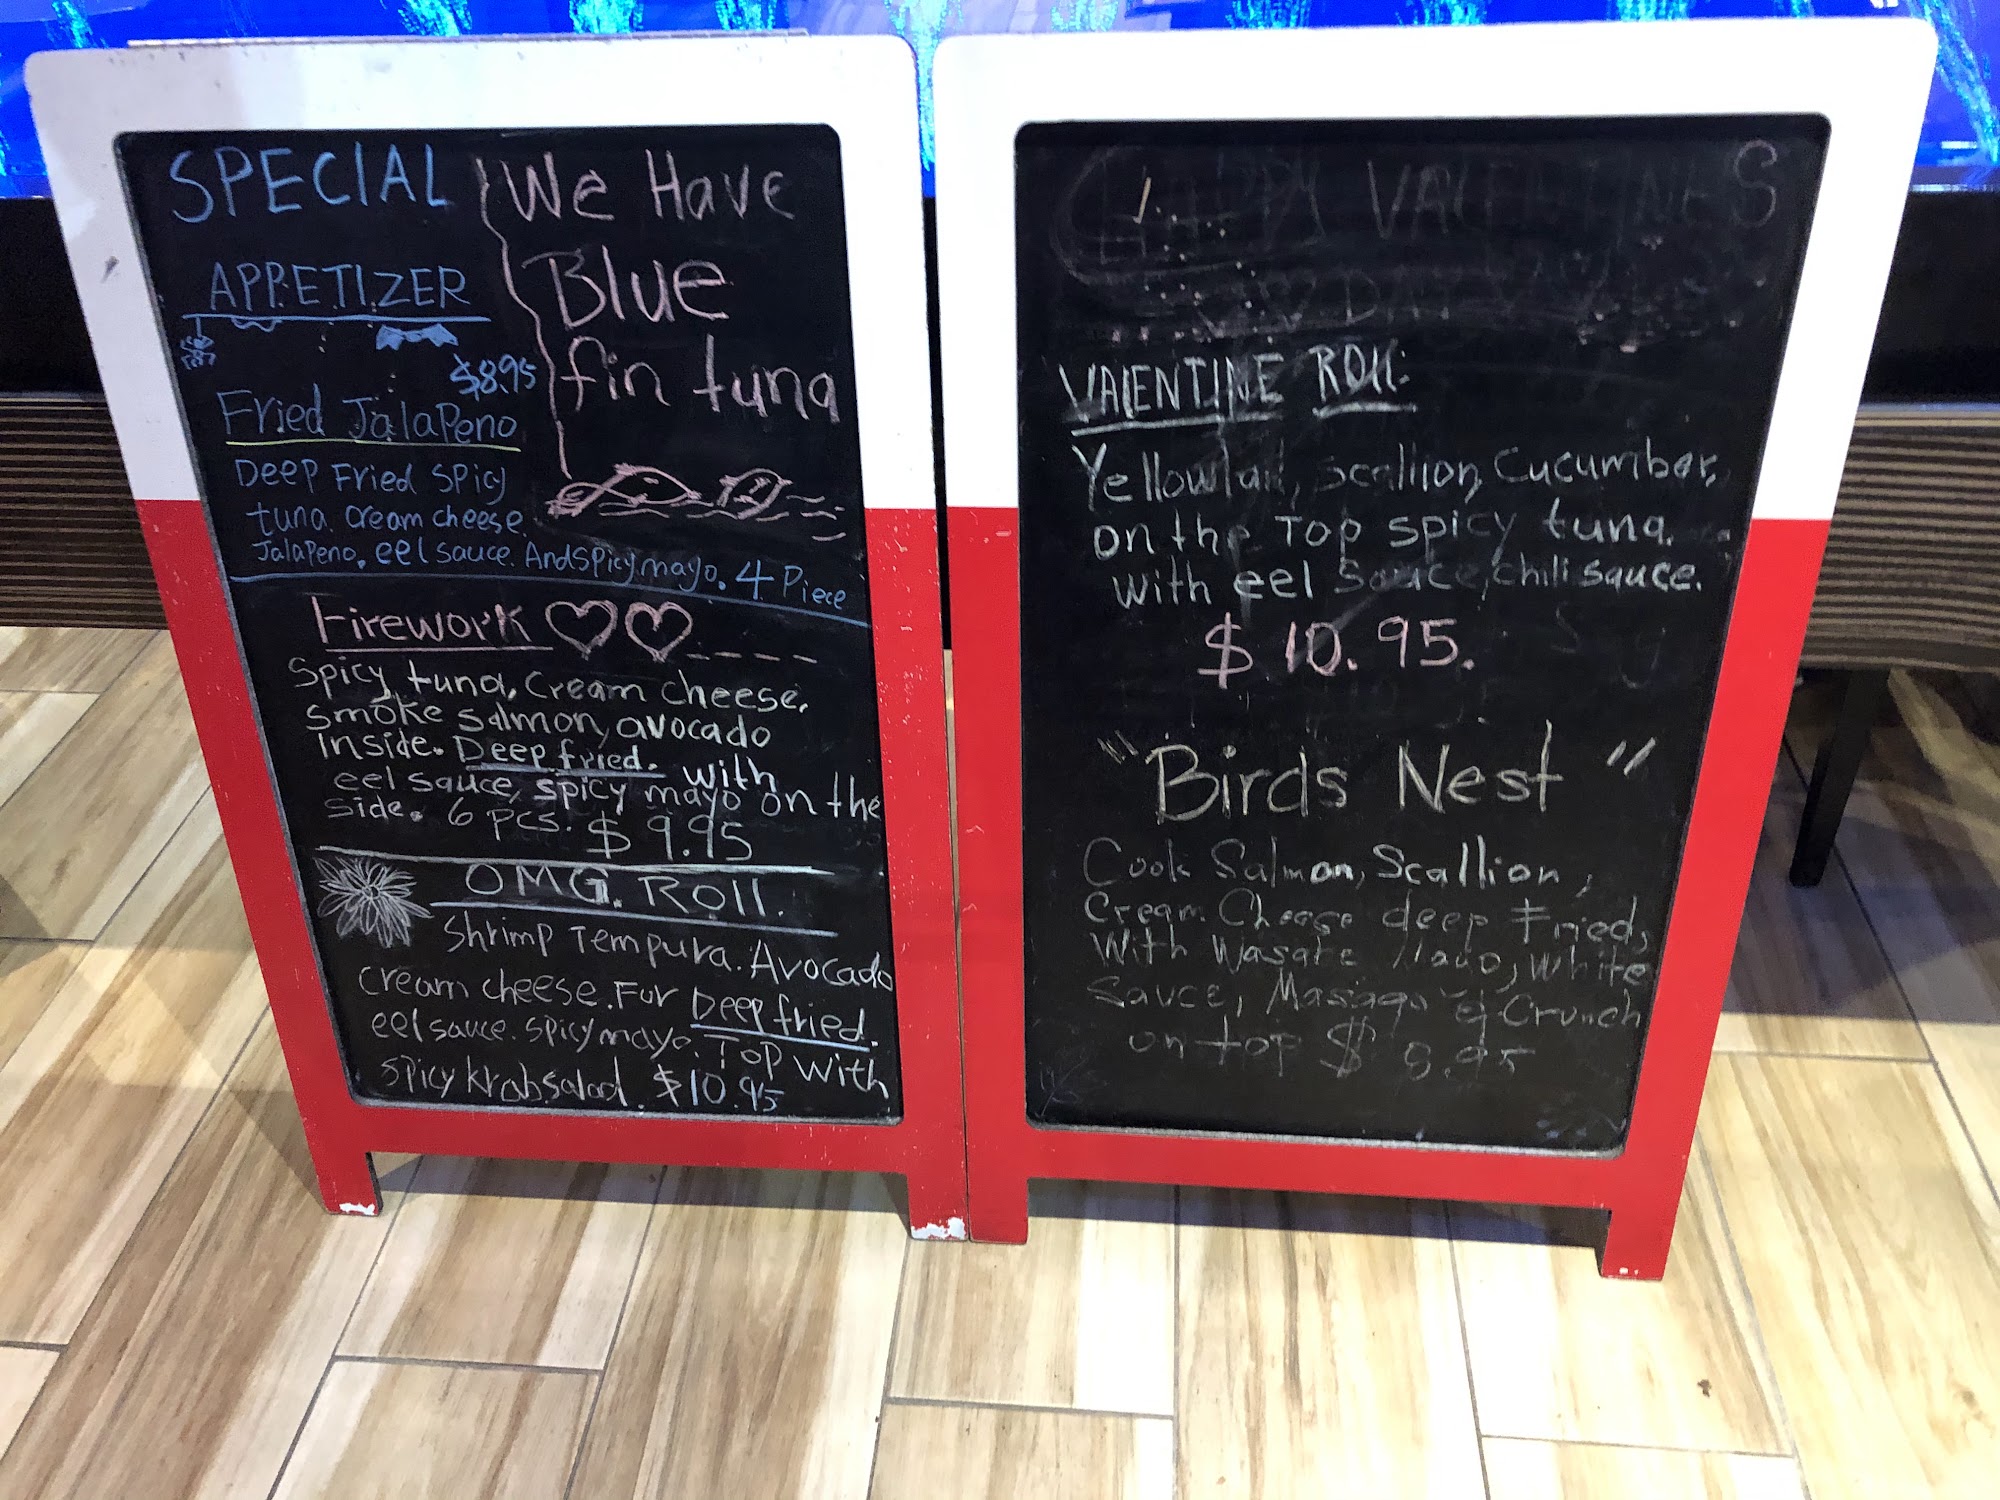 SPECIAL
APPETIZER
$8.95
Fried JalaPeno
DeeP Fried SPicy
tuna. cream cheese.
JalaPeno. eel sauce. And spicy mayo. 4 Piece
We Have
Blue
fin tuna
Firework
Spicy tuna, cream cheese,
smoke salmon, avocado
inside. Deep fried. with
eel sauce, spicy mayo on the
side. 6 pcs. $ 9.95
OMG. ROll.
Shrimp Tempura. Avocado
cream cheese. Fur Deep fried.
eel sauce. spicy mayo. Top with
spicy krab salad. $10.95
HAPPY VALENTINES
DAY
VALENTINE ROll:
Yellowtail, scallion, cucumber,
on the Top spicy tuna.
with eel sauce, chili sauce.
$ 10.95.
"Birds Nest"
Cook Salmon, Scallion,
Cream Cheese deep Fried,
With Mayo, White
Sauce, & Crunch
on top $ 8.95